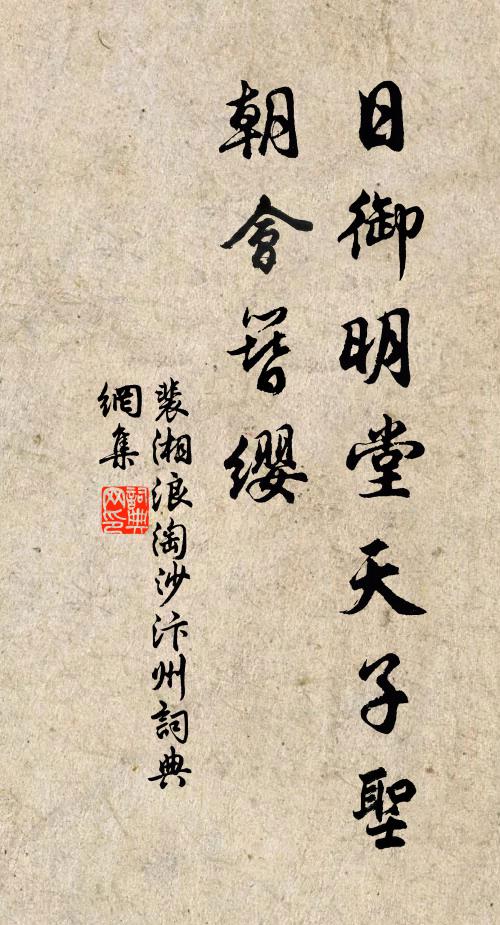 日御明堂天子聖
朝會簪纓
裴湘浪淘沙汴州詞典
網集
詞典
网印